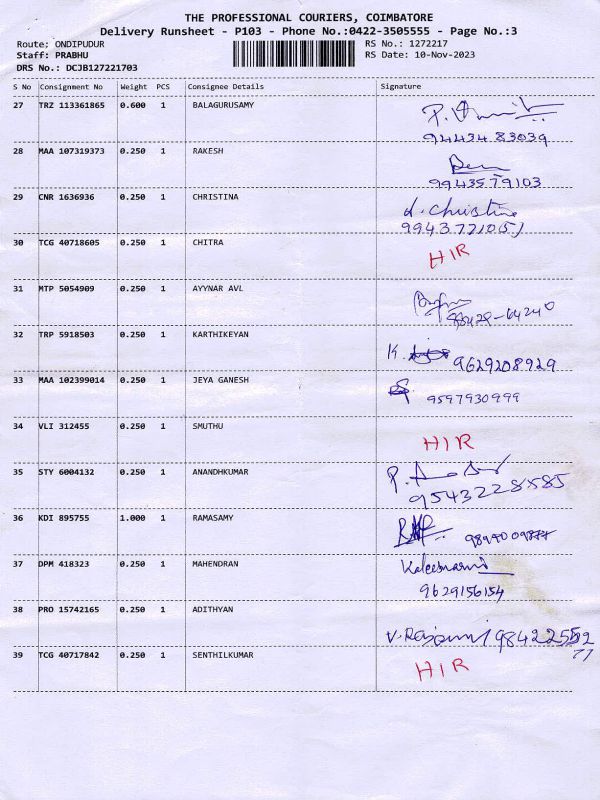 THE PROFESSIONAL COURIERS, COIMBATORE
Delivery Runsheet - P103 - Phone No.:0422-3505555 - Page No.:3
Route: ONDIPUDUR RS No.: 1272217
Staff: PRABHU RS Date: 10-Nov-2023
DRS No.: DCJB127221703
S No Consignment No Weight PCS Consignee Details Signature
27 TRZ 113361865 0.600 1 BALAGURUSAMY
94434 83039
28 MAA 107319373 0.250 1 RAKESH
99435 79103
29 CNR 1636936 0.250 1 CHRISTINA
30 TCG 40718605 0.250 1 CHITRA HIR
31 MTP 5054909 0.250 1 AYYNAR AVL
98428-64240
32 TRP 5918503 0.250 1 KARTHIKEYAN K. 9629208929
33 MAA 102399014 0.250 1 JEYA GANESH
9597930999
34 VLI 312455 0.250 1 SMUTHU HIR
35 STY 6004132 0.250 1 ANANDHKUMAR
9543228585
36 KDI 895755 1.000 1 RAMASAMY
37 DPM 418323 0.250 1 MAHENDRAN
9629156154
38 PRO 15742165 0.250 1 ADITHYAN
39 TCG 40717842 0.250 1 SENTHILKUMAR HIR